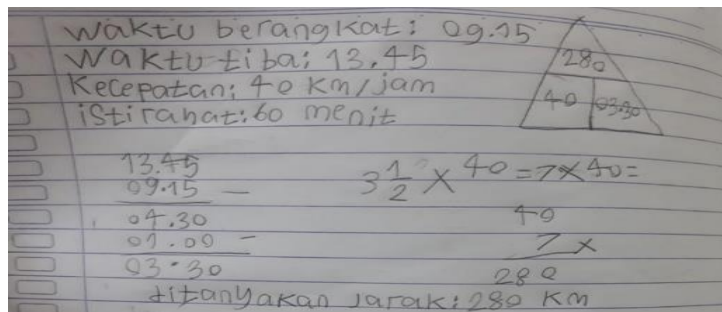 Waktu berangkat: 09.15
Waktu tiba: 13.45
Kecepatan: 40 Km/jam
istirahat: 60 menit
280
40 03.30
13.45
09.15 -
04.30
01.00 -
03.30
3 1/2 × 40 = 7 × 40 =
40
7 ×
280
ditanyakan Jarak: 280 Km